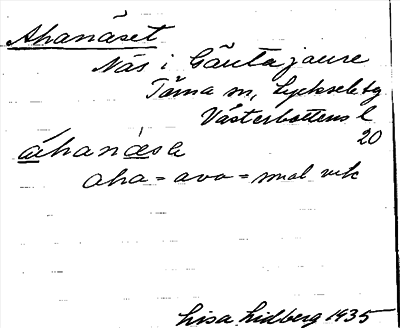 Ahanäset
Näs i Gäutajaure
Tärna sn, Lycksele tg
Västerbottens l
20
áhanásie
aha = ava = smal vik
Lisa Lidberg 1935